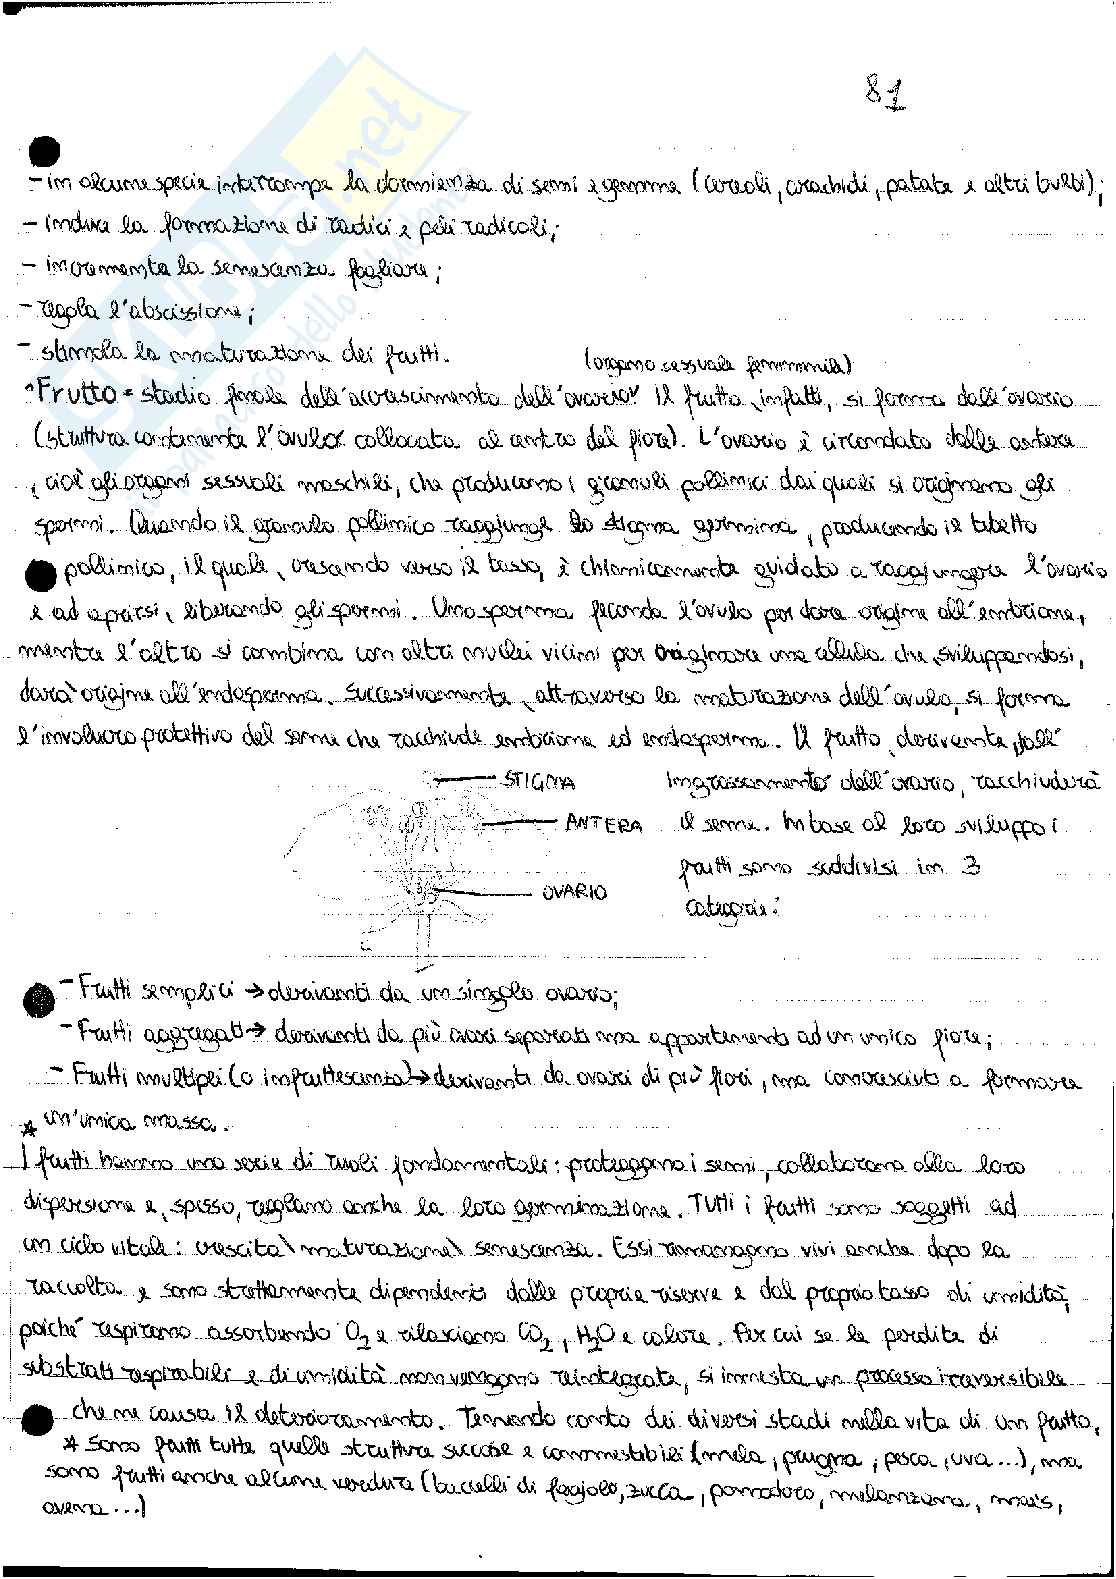 81
- in alcune specie interrompe la dormienza di semi e gemme (cereoli, arachidi, patate e altri bulbi);
- induce la formazione di radici e peli radicali;
- incrementa la senescenza fogliare;
- regola l'abscissione;
- stimola la maturazione dei frutti.
(organo sessuale femminile)
"Frutto = stadio finale dell'accrescimento dell'ovario". Il frutto, infatti, si forma dall'ovario
(struttura contenente l'ovulo collocata al centro del fiore). L'ovario è circondato dalle antere
, cioè gli organi sessuali maschili, che producono i granuli pollinici dai quali si originano gli
spermi. Quando il granulo pollinico raggiunge lo stigma germina, producendo il tubetto
pollinico, il quale, crescendo verso il basso, è chimicamente guidato a raggiungere l'ovario
e ad aprirsi, liberando gli spermi. Uno sperma feconda l'ovulo per dare origine all'embrione,
mentre l'altro si combina con altri nuclei vicini per originare una cellula che, sviluppandosi,
darà origine all'endosperma. Successivamente, attraverso la maturazione dell'ovulo, si forma
l'involucro protettivo del seme che racchiude embrione ed endosperma. Il frutto, derivante dall'
STIGMA
ingrossamento dell'ovario, racchiuderà
ANTERA
il seme. In base al loro sviluppo i
frutti sono suddivisi in 3
OVARIO
categorie:
- Frutti semplici → derivanti da un singolo ovario;
- Frutti aggregati → derivanti da più ovari separati ma appartenenti ad un unico fiore;
- Frutti multipli (o infruttescenza) → derivanti da ovari di più fiori, ma conosciuti a formare
* un'unica massa.
I frutti hanno una serie di ruoli fondamentali: proteggono i semi, collaborano alla loro
dispersione e, spesso, regolano anche la loro germinazione. Tutti i frutti sono soggetti ad
un ciclo vitale: crescita \ maturazione \ senescenza. Essi rimangono vivi anche dopo la
raccolta e sono strettamente dipendenti dalle proprie riserve e dal proprio tasso di umidità,
poiché respirano assorbendo O2 e rilasciano CO2, H2O e calore. Per cui se le perdite di
substrati respirabili e di umidità non vengono reintegrate, si innesta un processo irreversibile
che ne causa il deterioramento. Tenendo conto dei diversi stadi nella vita di un frutto,
* Sono frutti tutte quelle strutture succose e commestibili (mela, prugna, pesca, uva ...), ma
sono frutti anche alcune verdure (baccelli di fagiolo, zucca, pomodoro, melanzana, mais,
avena ...)